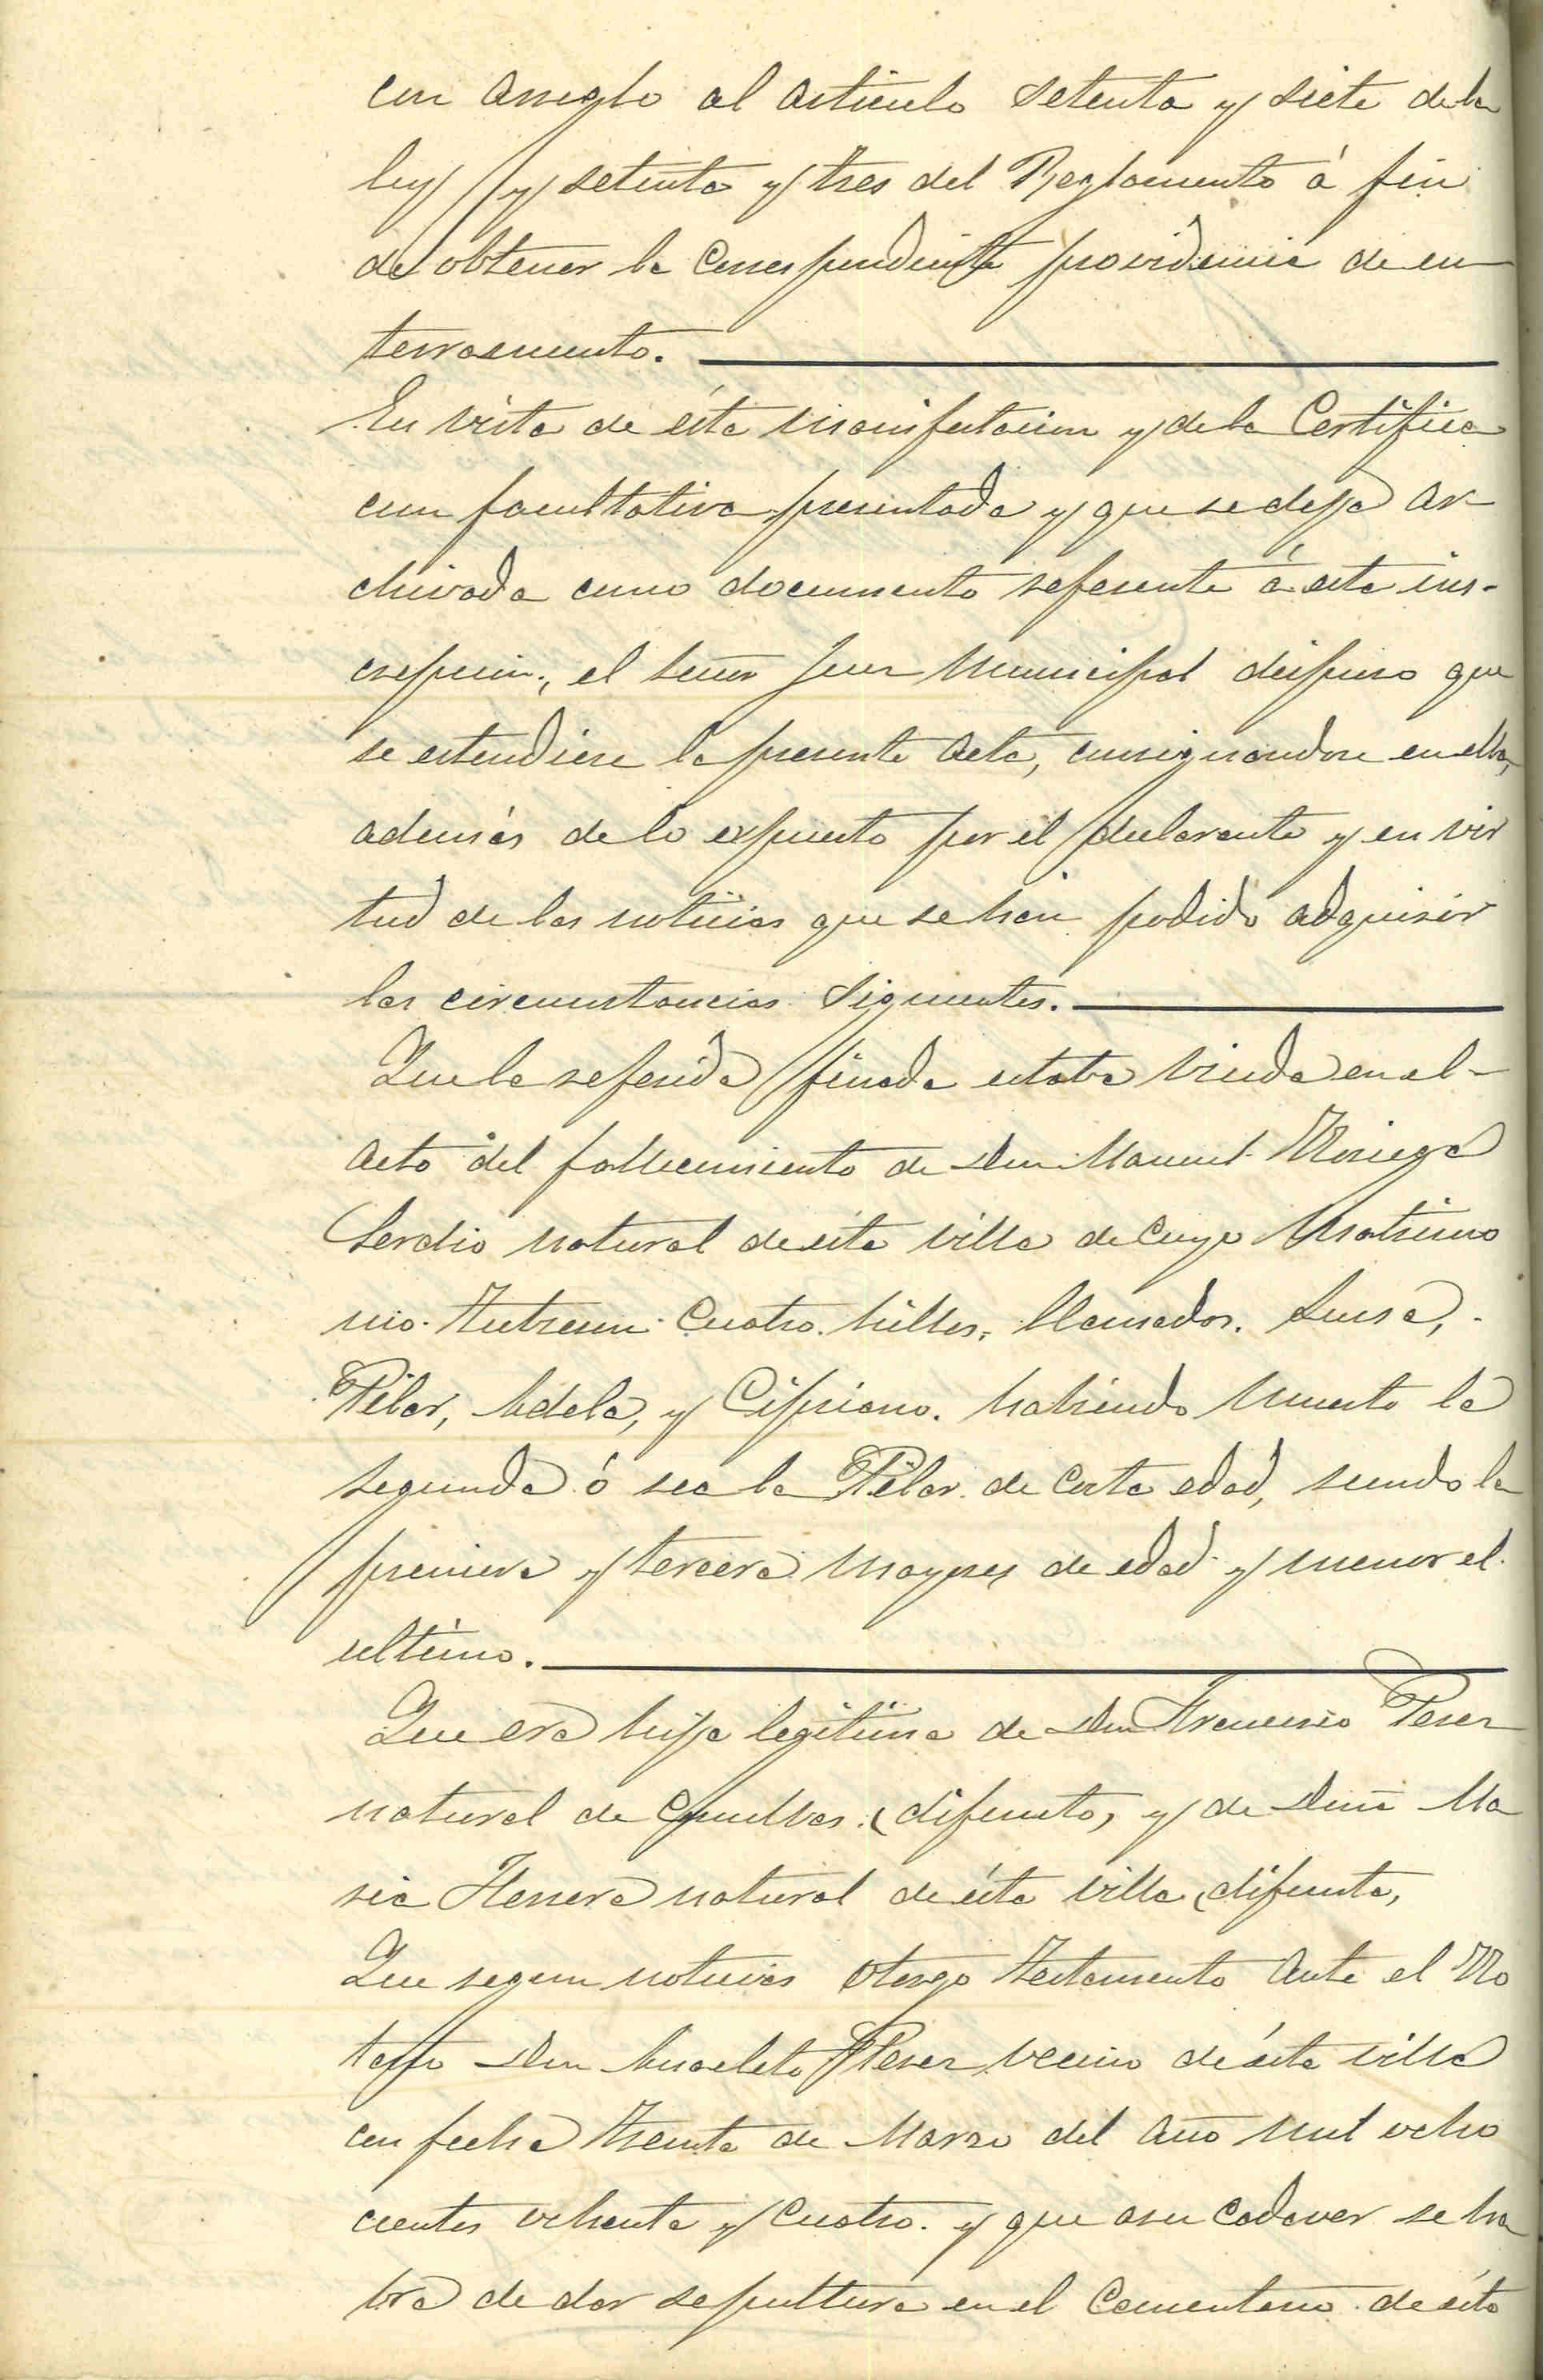 con arreglo al articulo setenta y siete de la
ley y setenta y tres del Reglamento á fin
de obtener la correspondiente providencia de en
terramiento.
En vista de ésta manifestacion y de la Certifica
cion facultativa presentada y que se deja ar
chivada como documento referente á esta ins-
cripcion, el señor Juez Municipal dispuso que
se estendiese la presente acta, consignandose en ella,
además de lo expuesto por el declarante y en vir
tud de las noticias que se han podido adquirir
las circunstancias siguientes.
Que la referida finada estaba viuda en el
acto del fallecimiento de Don Manuel Noriega
Serdio natural de ésta villa de cuyo Matrimo
nio tubieron cuatro hillos, llamados. Luisa,
Pilar, Adela, y Cipriano. habiendo muerto la
segunda ó sea la Pilar de corta edad, siendo la
primera y tercera mayores de edad y menor el
ultimo.
Que era hija legitima de Don Francisco Perez
natural de (difunto, y de Doña Ma
ria Herrera natural de ésta villa (difunta,
Que segun noticias otorgo testamento ante el No
tario Don Anacleto Perez vecino de ésta villa
con fecha treinta de Marzo del año mil ocho
cientos ochenta y cuatro. y que asu cadaver se ha
bra de dar sepultura en el Cementerio de ésta